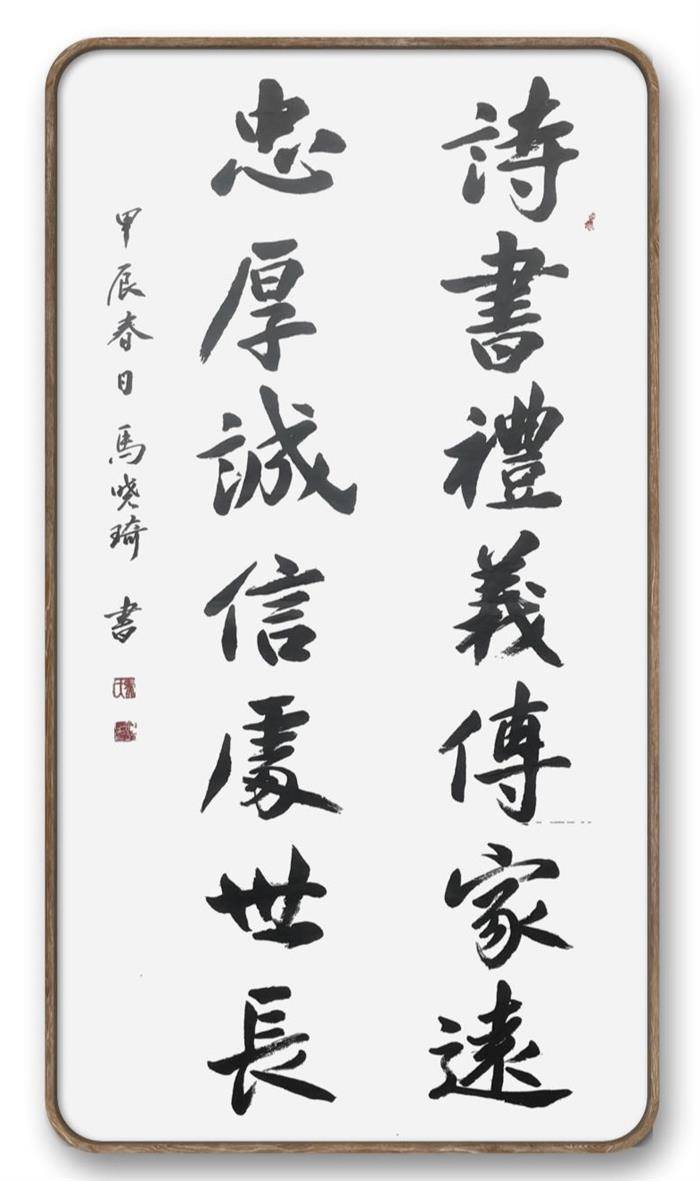 詩書禮義傳家遠
忠厚誠信處世長
甲辰春日馬曉琦書